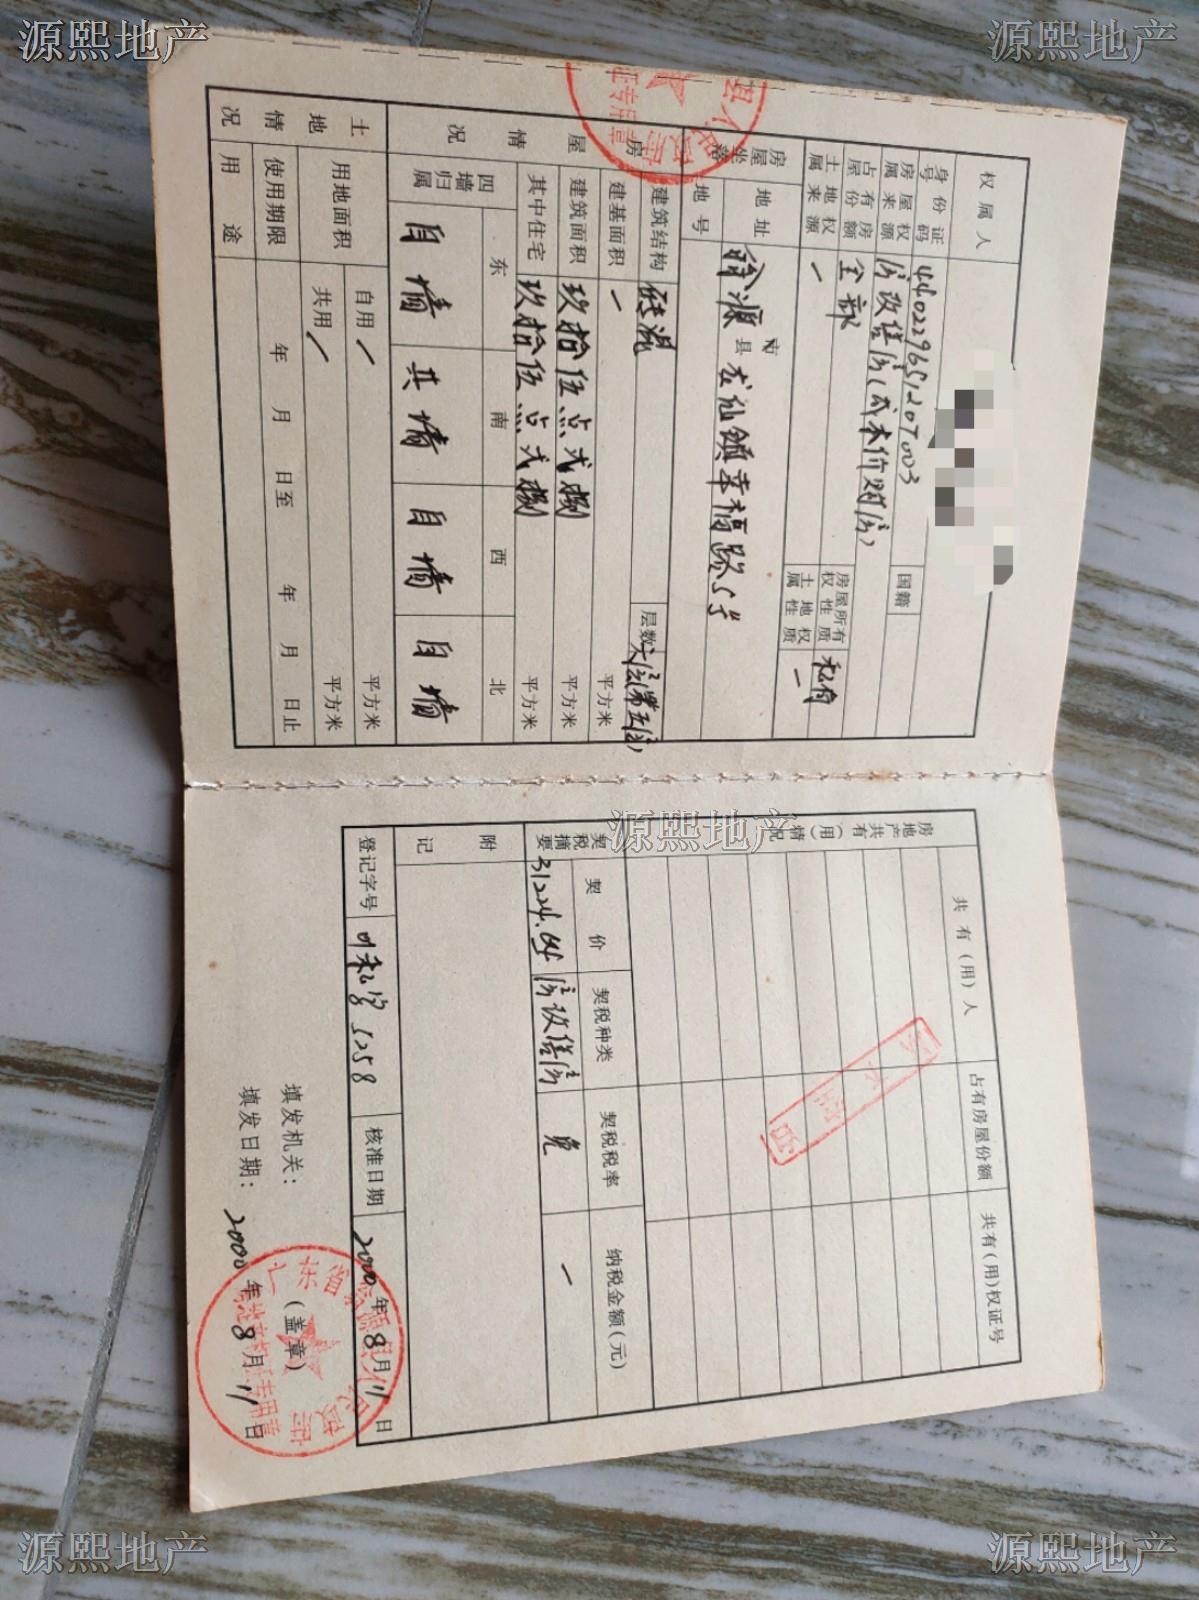 源熙地产
源熙地产
权属人
身份证号码 440229651207003 国籍
房屋权属来源 房改售房(成本价购房)
占有房屋份额 全部 房屋所有权性质 私有
土地权属来源 一 土地权属性质 一
房屋坐落 地址 翁源市县龙仙镇幸福路5号
地号
房屋情况 建筑结构 砖混 层数 六层(第五层)
建基面积 一 平方米
建筑面积 玖拾伍点弍捌 平方米
其中住宅 玖拾伍点弍捌 平方米
四墙归属 东 南 西 北
自墙 共墙 自墙 自墙
土地情况 用地面积 自用 / 平方米
共用 / 平方米
使用期限 年 月 日至 年 月 日止
用途
源熙地产
房地产共有(用)情况 共有(用)人 占有房屋份额 共有(用)权证号
契税摘要 契价 契税种类 契税税率 纳税金额(元)
31224.04 房改售房 免 一
附记
登记字号 5258 核准日期 2000年8月11日
填发机关: (盖章)
填发日期: 2000年8月11日
广东省翁源县人民政府
房地产权证专用章
源熙地产
源熙地产